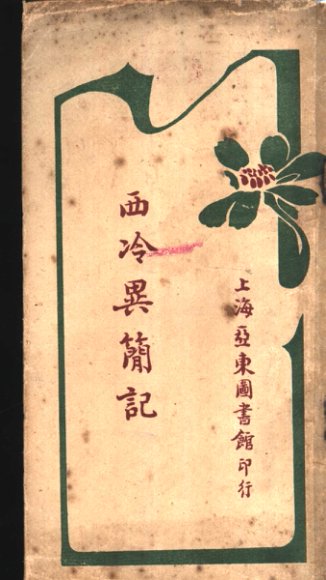 西冷異簡記
上海亞東圖書館印行